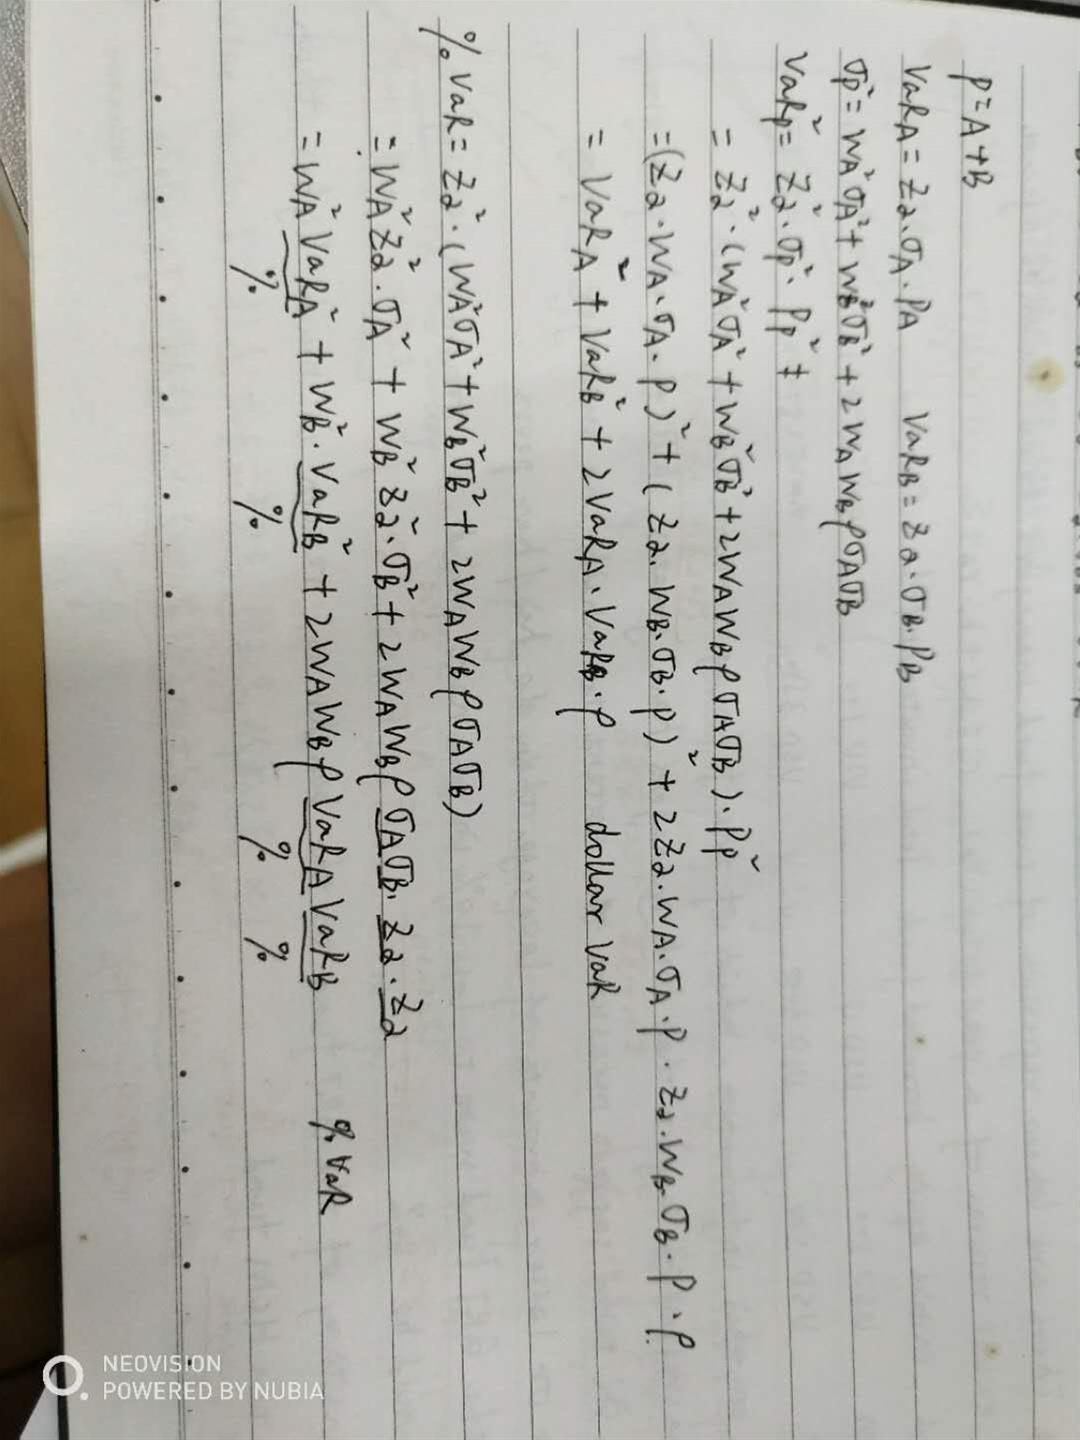 P=A+B
VaRA = Zα·σA·PA VaRB = Zα·σB·PB
σP² = WA²σA² + WB²σB² + 2WAWBρσAσB
VaRP² = Zα²·σP²·PP² +
= Zα²·(WA²σA² + WB²σB² + 2WAWBρσAσB)·PP²
=(Zα·WA·σA·P)² + (Zα·WB·σB·P)² + 2Zα·WA·σA·P·Zα·WB·σB·P·ρ
= VaRA² + VaRB² + 2VaRA·VaRB·ρ dollar VaR
%VaR = Zα²·(WA²σA² + WB²σB² + 2WAWBρσAσB)
= WA²Zα²·σA² + WB²Zα²·σB² + 2WAWBρσAσB·Zα·Zα
= WA²VaRA² + WB²·VaRB² + 2WAWBρVaRAVaRB %VaR
% % % %
NEOVISION
POWERED BY NUBIA